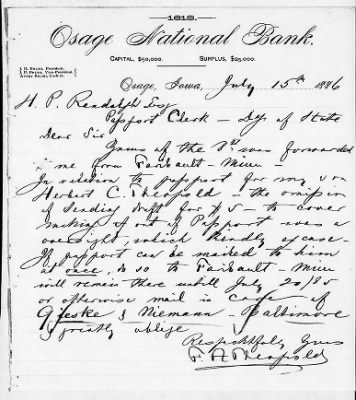 1818.
Osage National Bank.
CAPITAL, $50,000. SURPLUS, $25,000.
J. H. Brush, President.
Osage, Iowa, July 15th 1886
H. P. Randolph Esq
Passport Clerk – Dept of State
Dear Sir
Yours of the was forwarded
me from Faribault – Minn –
In relation to passport for my son
Herbert C. Theopold – the omission
of sending draft for $5 – to cover
making of out of Passport was a
oversight, which kindly excuse –
If passport can be mailed to him
at once, do so to Faribault – Minn
will remain there until July 20/85
or otherwise mail in care of
Gieske & Niemann – Baltimore
& greatly oblige
Respectfully Yours
F. A. Theopold